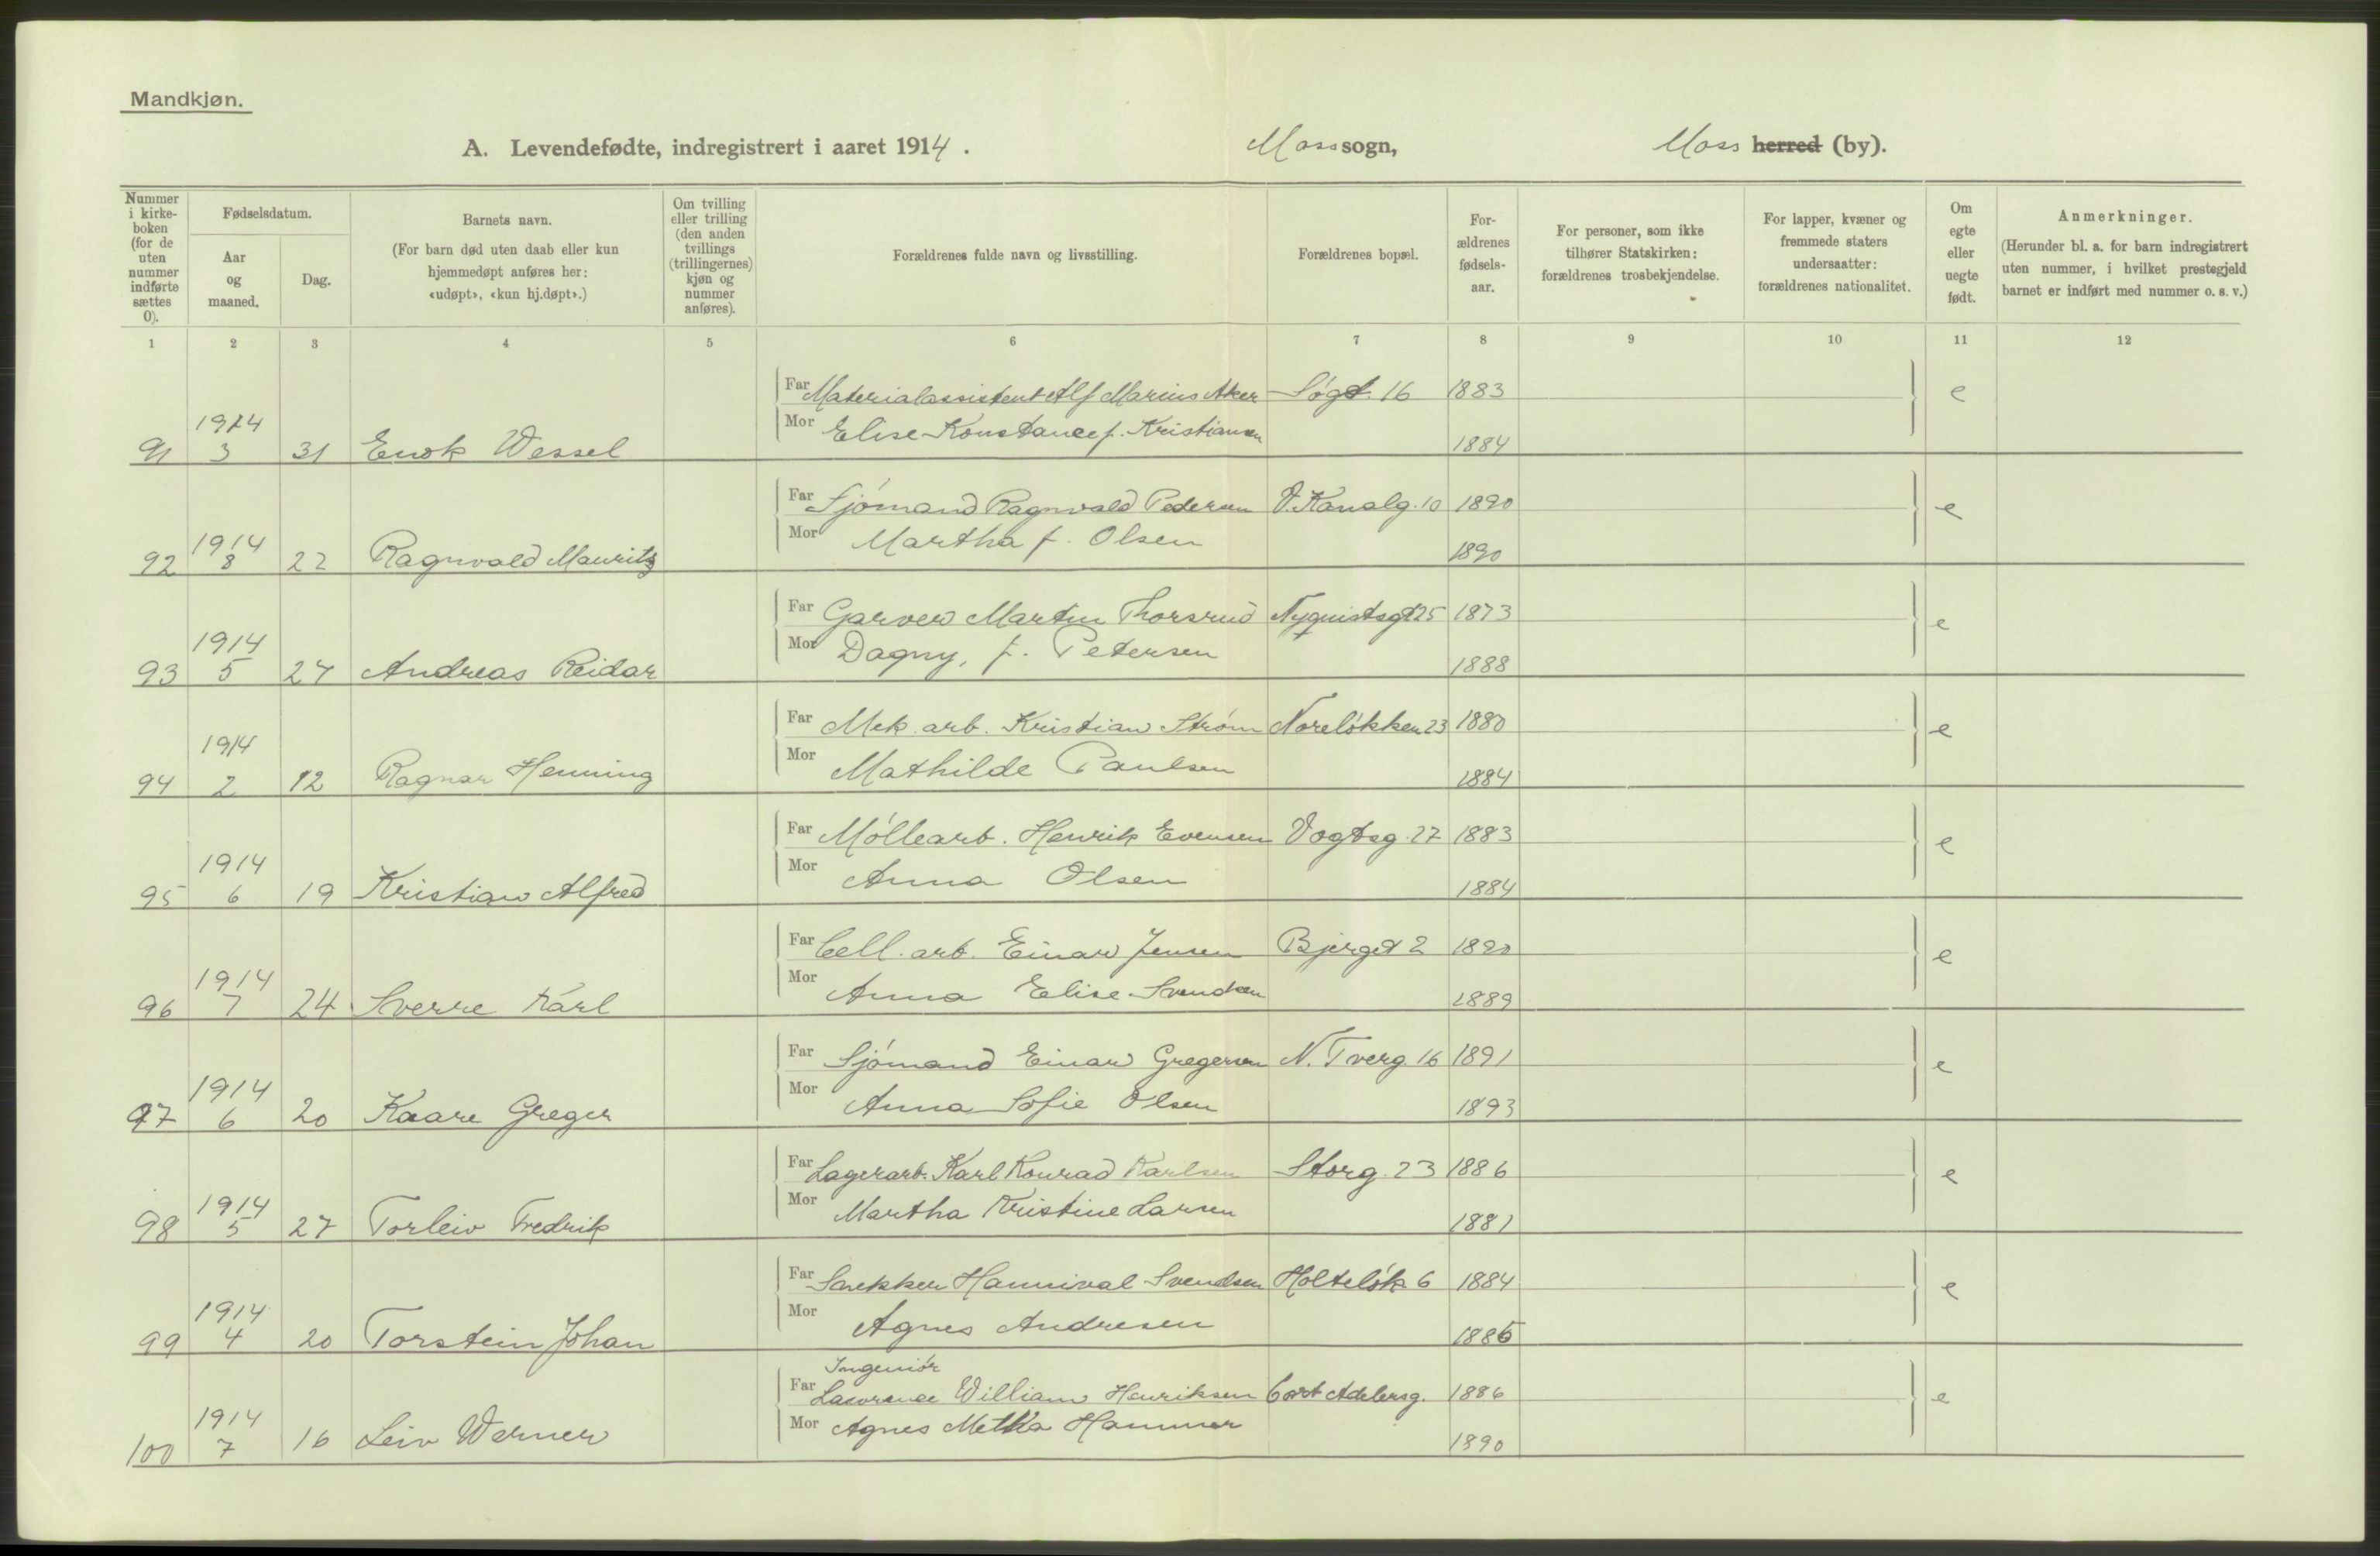 Mandkjøn.
A. Levendefødte, indregistrert i aaret 1914.
Moss sogn,
Moss herred (by).
Nummer i kirke-boken (for de uten nummer indførte sættes 0).
Fødselsdatum.
Aar og maaned.
Dag.
Barnets navn.
(For barn død uten daab eller kun hjemmedøpt anføres her: «udøpt», «kun hj.døpt».)
Om tvilling eller trilling (den anden tvillings (trillingernes) kjøn og nummer anføres).
Forældrenes fulde navn og livsstilling.
Forældrenes bopæl.
For-ældrenes fødsels-aar.
For personer, som ikke tilhører Statskirken: forældrenes trosbekjendelse.
For lapper, kvæner og fremmede staters undersaatter: forældrenes nationalitet.
Om egte eller uegte født.
Anmerkninger.
(Herunder bl. a. for barn indregistrert uten nummer, i hvilket prestegjeld barnet er indført med nummer o. s. v.)
1 2 3 4 5 6 7 8 9 10 11 12
Far Materialassistent Alf Marius Aker Søgt. 16 1883 e
Mor Elise Konstance f. Kristiansen 1884
91 1914 3 31 Enok Wessel
Far Sjømand Ragnvald Pedersen V. Kanalg. 10 1890 e
Mor Martha f. Olsen 1890
92 1914 8 22 Ragnvald Mauritz
Far Garver Martin Thorsrud Nyquistsgt 25 1873 e
Mor Dagny, f. Petersen 1888
93 1914 5 27 Andreas Reidar
Far Mek. arb. Kristian Strøm Noreløkken 23 1880 e
Mor Mathilde Paulsen 1884
94 1914 2 12 Ragnar Henning
Far Møllearb. Henrik Evensen Vogtsg. 27 1883 e
Mor Anna Olsen 1884
95 1914 6 19 Kristian Alfred
Far Cell. arb. Einar Jensen Bjerget 2 1890 e
Mor Anna Elise Svendsen 1889
96 1914 7 24 Sverre Karl
Far Sjømand Einar Gregersen N. Tverg. 16 1891 e
Mor Anna Sofie Olsen 1893
97 1914 6 20 Kaare Greger
Far Lagerarb. Karl Konrad Karlsen Storg. 23 1886 e
Mor Martha Kristine Larsen 1881
98 1914 5 27 Torleiv Fredrik
Far Snekker Hannival Svendsen Holteløk. 6 1884 e
Mor Agnes Andresen 1885
99 1914 4 20 Torstein Johan
Ingeniør
Far Lawrence William Henriksen Cort Adelersg. 1886 e
Mor Agnes Metha Hammer 1890
100 1914 7 16 Leiv Werner